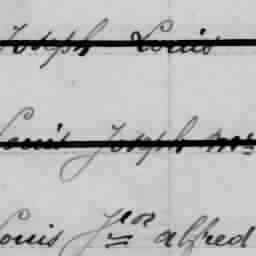 Joseph Louis
Louis Joseph
Louis Jror alfred